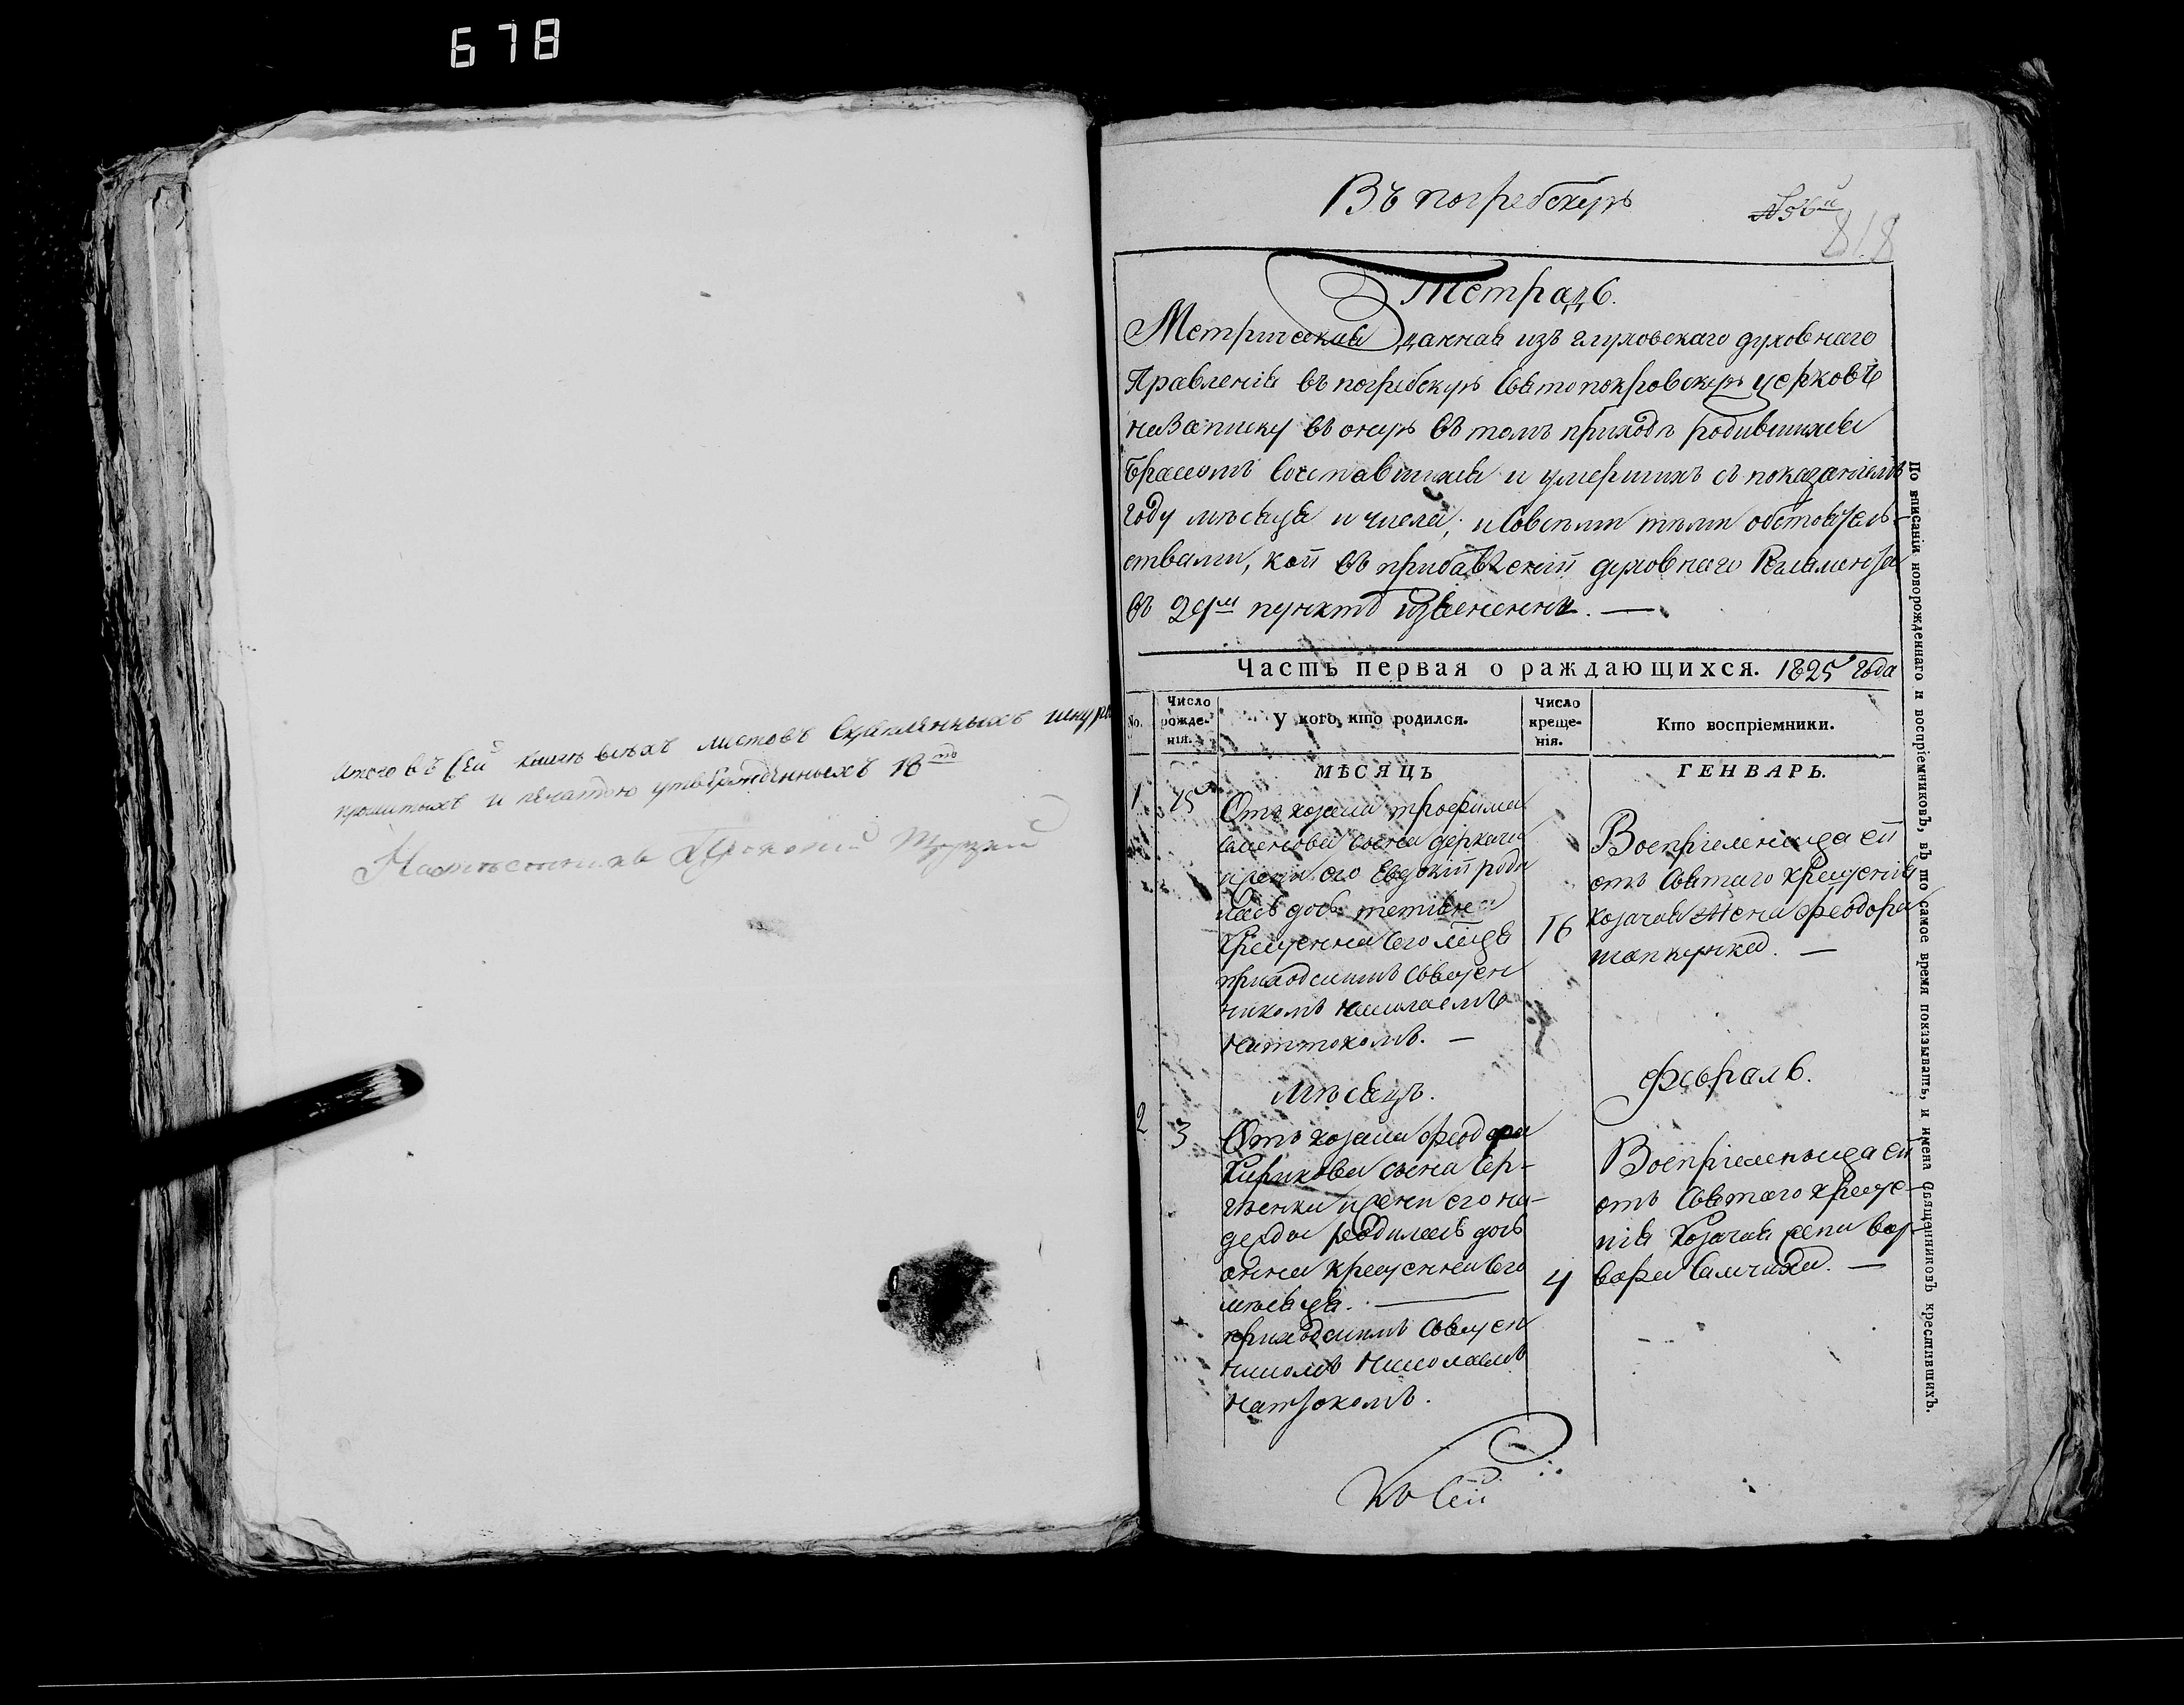 678
Итого въ сей книгѣ всѣхъ листовъ скрѣпленныхъ шнуромъ
прошитыхъ и печатью утвержденныхъ 18ть
Намѣстникъ
Въ погребскую
818
Тетрадь.
Метрическая данная изъ глуховскаго духовнаго
Правленія въ погребскую святопокровскую церковъ
на записку въ оную въ томъ приходѣ родившихся
бракомъ сочетавшихся и умершихъ съ показаніемъ
году мѣсяца и числа, и со всѣми тѣми обстоятель-
ствами, кои въ прибавленіи духовнаго Регламента
въ 29мъ пунктѣ изъясненны. —
Часть первая о раждающихся. 1825 года
No. Число рожде- нія. У кого, кто родился. Число креще- нія. Кто воспріемники.
МѢСЯЦЪ ГЕНВАРЬ.
1 15 Отъ козака трофима
сына деркача
и жены его Евдокіи роди
лась дочь татіяна
крещенна сего мѣсяца
приходскимъ священ
никомъ николаемъ
наттокомъ. —
16
Воспріемница ей
отъ святаго крещенія
козачая жена феодора
шапкунка. —
мѣсяцъ. Февраль.
2 3 Отъ козака феодора
Кирикова сына сер-
гѣенка и жены его на-
дежды родилась дочь
анна крещенна сего
мѣсяца. —
приходскимъ священ
никомъ николаемъ
наттокомъ.
4
Воспріемница ей
отъ святаго креще-
нія козачая жена вар-
вара —
Къ сей
По вписаніи новорожденнаго и воспріемниковъ, въ то самое время показывать, и имена Священниковъ крестившихъ.